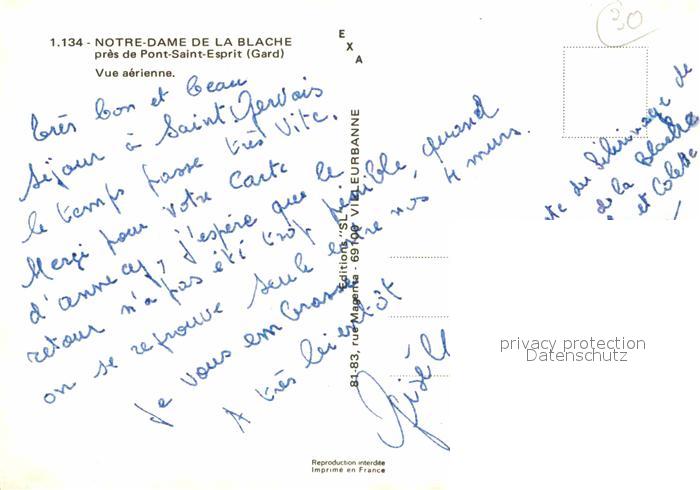 30
1.134 - NOTRE-DAME DE LA BLACHE
près de Pont-Saint-Esprit (Gard)
Vue aérienne.
EXA
Très bon et beau
séjour à Saint Gervais
le temps passe très vite.
Merçi pour votre carte
d'annecy, j'espère que le
retour n'a pas été trop pénible, quand
on se retrouve seule entre nos 4 murs.
Je vous embrasse
A très bientôt
Gisèl
Editions "SL"
81-83, rue Magenta - 69100 VILLEURBANNE
du Pélerinage de
de la Blache
et Colette
privacy protection
Datenschutz
Reproduction interdite
Imprimé en France